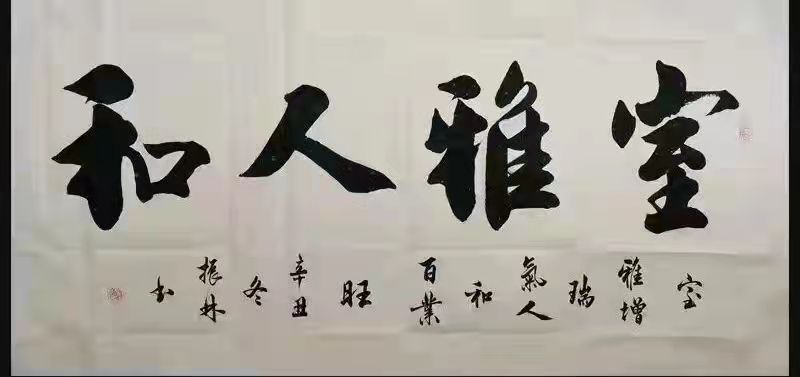 室雅人和
室雅增瑞氣人和百業旺辛丑冬振林书